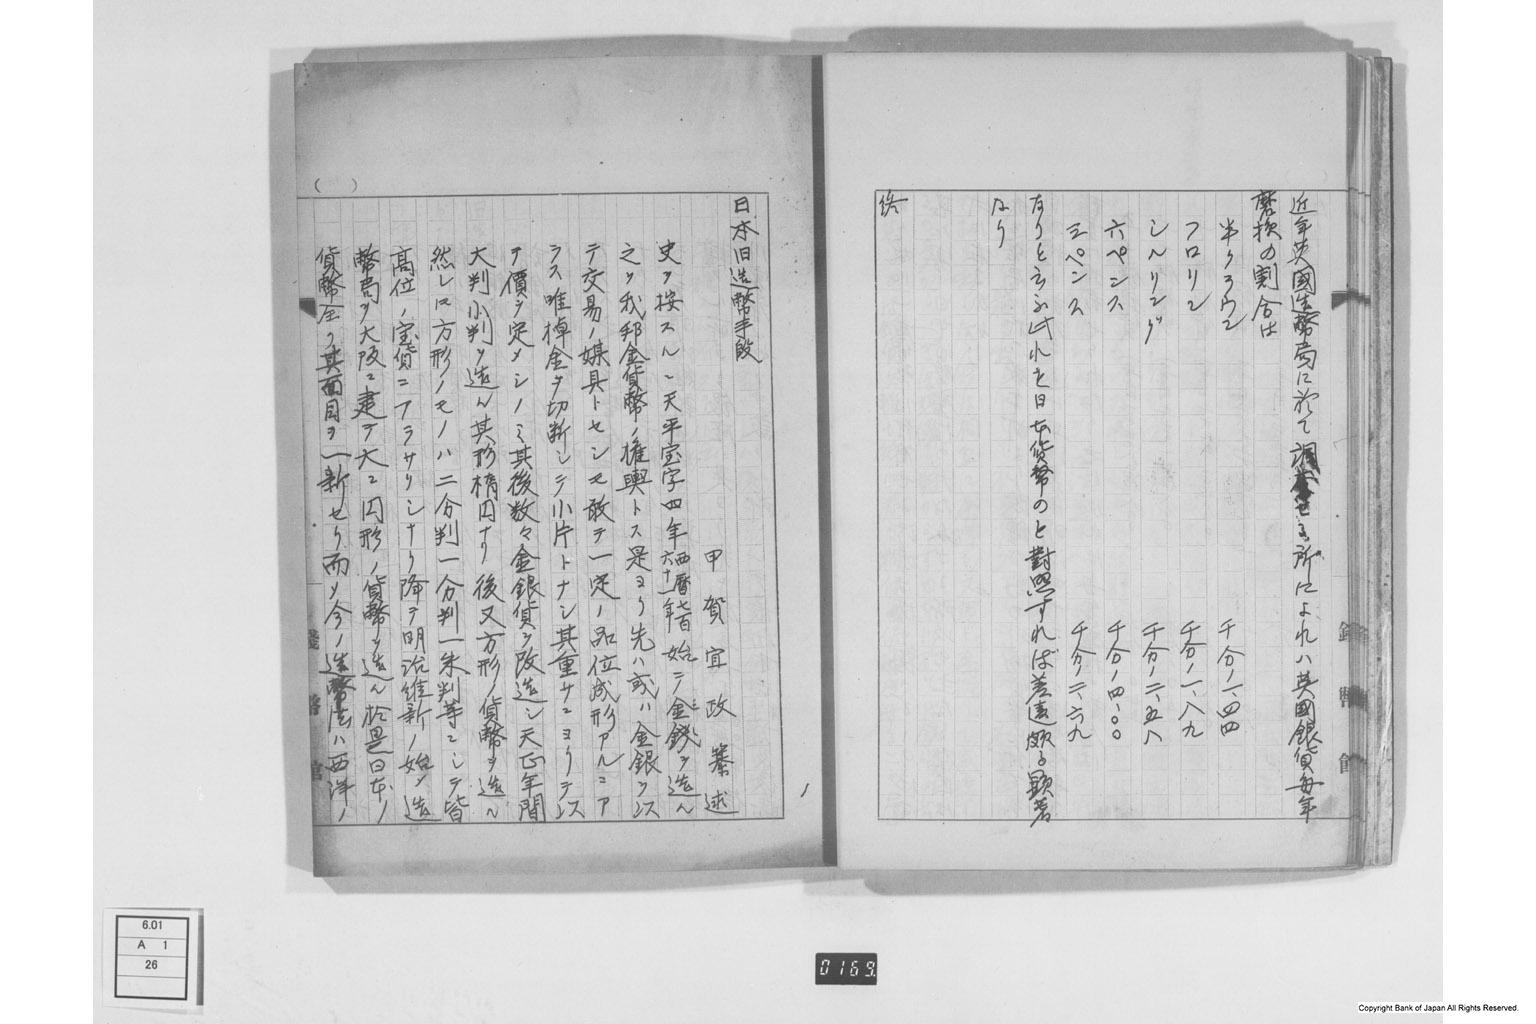 近年英國造幣局に於て調査せる所によれハ英國銀貨毎年
磨損の割合は
半クラウン 千分ノ一、四四
フロリン 千分ノ一、八九
シルリング 千分ノ二、五八
六ペンス 千分ノ四、〇〇
三ペンス 千分ノ二、六九
なりと云ふ此れを日本貨幣のと對照すれば差違頗る顕著
なり
終
錢幣館
日本旧造幣手段
甲賀宜政纂述
史ヲ按スルニ天平宝字四年西暦七百六十年始テ金銭ヲ造ル
之ヲ我邦金貨幣ノ権輿トス是ヨリ先ハ或ハ金銀ヲ以
テ交易ノ媒具トセシモ敢テ一定ノ品位成形アルニア
ラス唯棹金ヲ切断シテ小片トナシ其重サニヨリテ以
テ價ヲ定メシノミ其後数々金銀貨ヲ改造シ天正年間
大判小判ヲ造ル其形楕円ナリ後又方形ノ貨幣ヲ造ル
然レ𪜈方形ノモノハ二分判一分判一朱判等ニシテ皆
高位ノ宝貨ニアラサリシナリ降テ明治維新ノ始メ造
幣局ヲ大阪ニ建テ大ニ円形ノ貨幣ヲ造ル於是日本ノ
貨幣全ク其面目ヲ一新セリ而シ今ノ造幣法ハ西洋ノ
( )
錢幣館
6.01
A 1
26
0169
Copyright Bank of Japan All Rights Reserved.